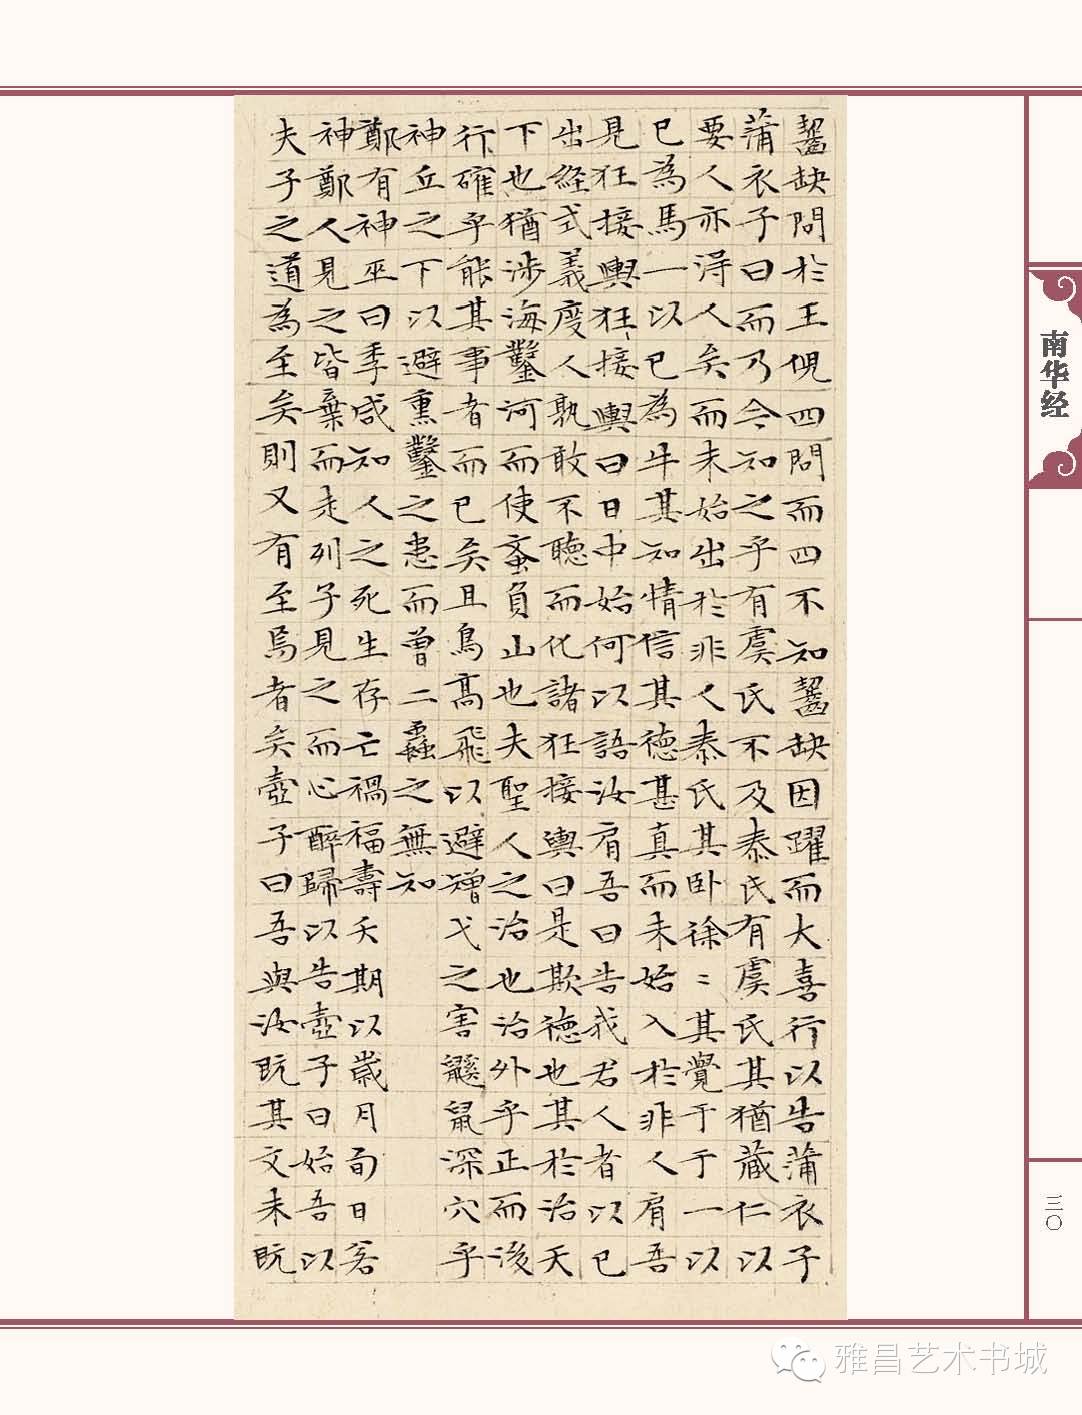 齧缺問於王倪四問而四不知齧缺因躍而大喜行以告蒲衣子
蒲衣子曰而乃今知之乎有虞氏不及泰氏有虞氏其猶藏仁以
要人亦得人矣而未始出於非人泰氏其卧徐〻其覺于于一以
已為馬一以已為牛其知情信其德甚真而未始入於非人肩吾
見狂接輿狂接輿曰日中始何以語汝肩吾曰告我君人者以已
出経式義度人孰敢不聽而化諸狂接輿曰是欺德也其於治天
下也猶涉海鑿河而使蚉負山也夫聖人之治也治外乎正而後
行確乎能其事者而已矣且鳥高飛以避矰弋之害鼷鼠深穴乎
神丘之下以避熏鑿之患而曾二蟲之無知
鄭有神巫曰季咸知人之死生存亡禍福壽夭期以歲月旬日若
神鄭人見之皆棄而走列子見之而心醉歸以告壺子曰始吾以
夫子之道為至矣則又有至焉者矣壺子曰吾與汝既其文未既
南华经
三〇
雅昌艺术书城